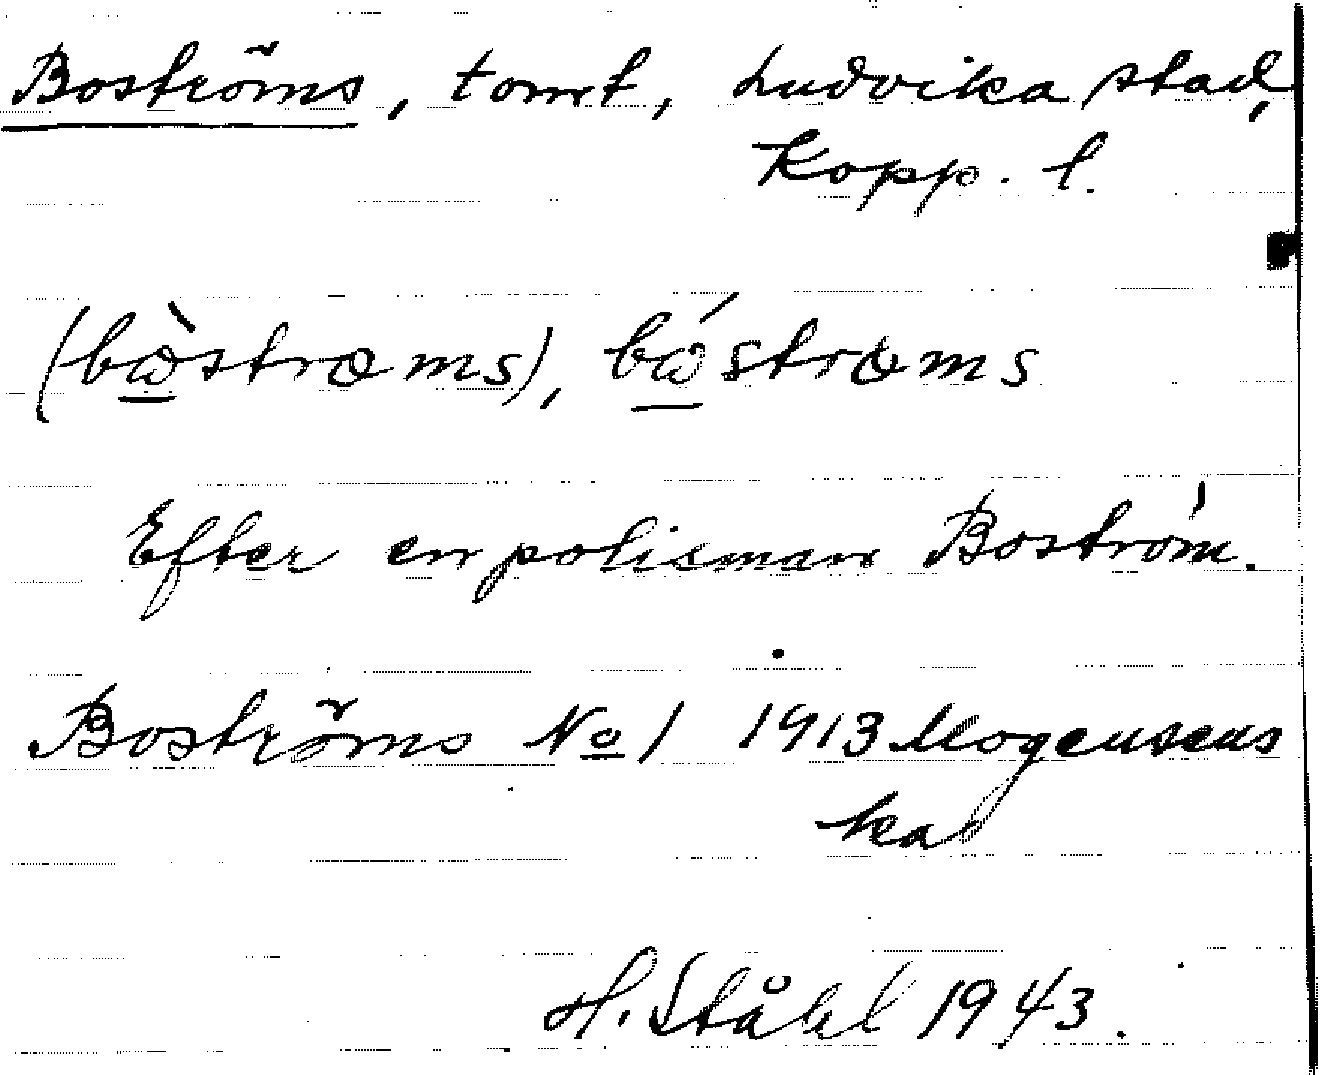 Boströms, tomt, Ludvika stad,
Kopp. l.
(bòstrœms), bóstrœms
Efter en polisman Boström.
Boströms № 1 1913 Mogensens
ka
H. Ståhl 1943.